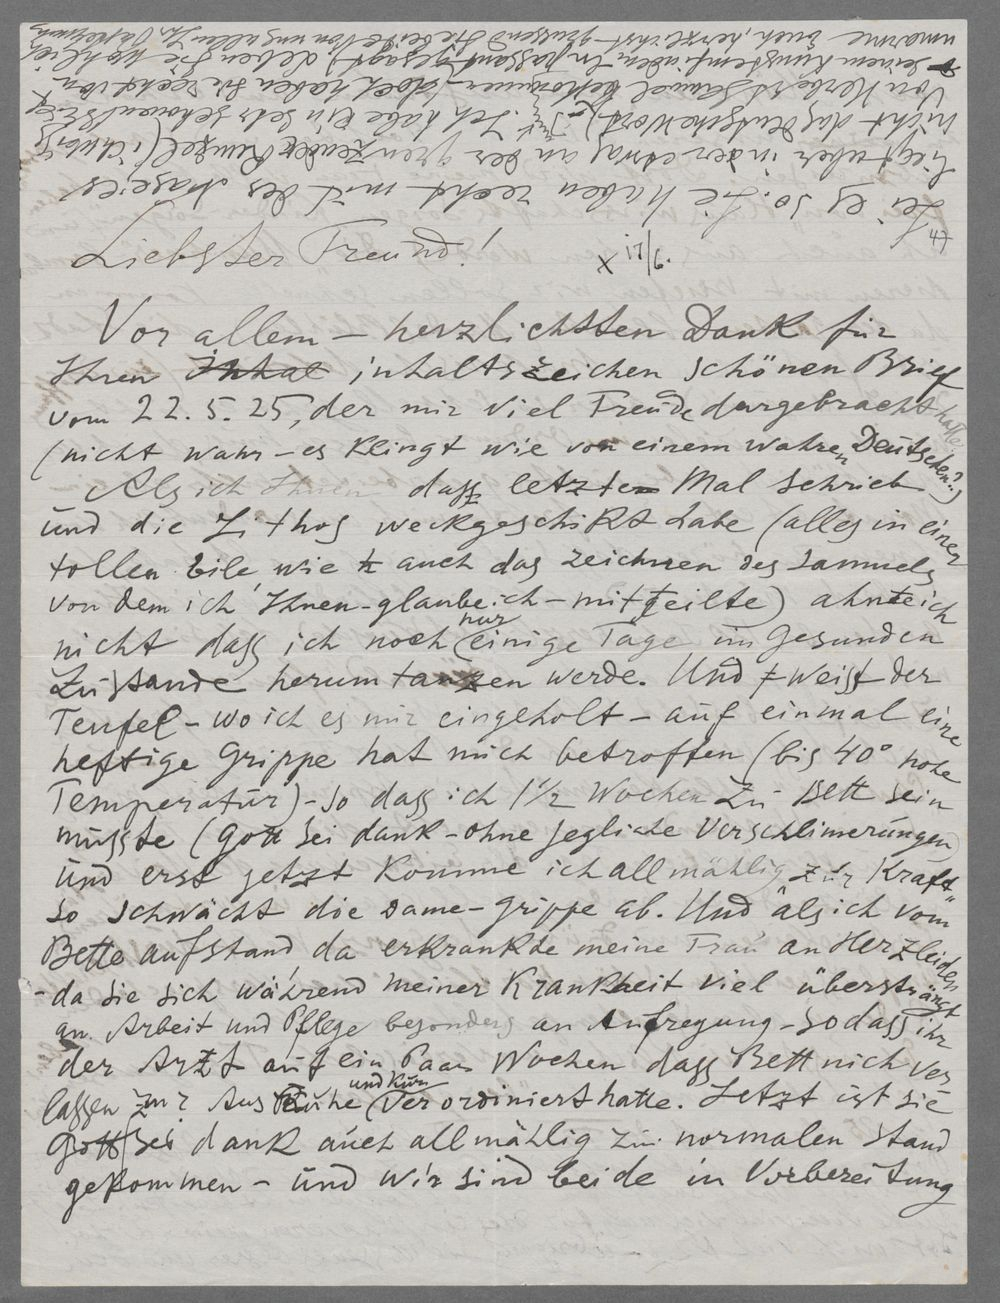 Liebster Freund!
X 17/6.
47
Vor allem – herzlichsten Dank für
Ihren Inhal inhaltsreichen schönen Brief
vom 22.5.25, der mir viel Freude dargebracht hatte
(nicht wahr – es klingt wie von einem wahren Deutschen?)
Als ich Ihnen dass letzte Mal schrieb
und die Lithos weckgeschikt habe (alles in einer
tollen Eile, wie auch das zeichnen des Samuels
von dem ich Ihnen – glaube ich – mitteilte) ahnte ich
nicht dass ich noch nur einige Tage im gesunden
Zustande herumtanzen werde. Und weiss der
Teufel – wo ich es mir eingeholt – auf einmal eine
heftige Grippe hat mich betroffen (bis 40° hohe
Temperatur) – so dass ich 1½ Wochen zu Bett sein
müsste (Gott sei dank – ohne jegliche Verschlimerungen)
und erst jetzt komme ich allmählig "zur Kraft"
so schwächt die Dame – Grippe ab. Und als ich vom
Bette aufstand, da erkrankde meine Frau an Herzleiden
– da sie sich während meiner Krankheit viel übersträngt
an Arbeit und Pflege besonders an Aufregung – so dass ihr
der Arzt auf ein Paar Wochen dass Bett nich ver
lassen zur Aus Ruhe und Kur verordiniert hatte. Jetzt ist sie
Gott sei dank auch allmählig zu normalen Stand
gekommen – und wir sind beide in Vorbereitung
sei es so. Sie haben recht mit der Nase: es
liegt aber in der etwas an der grenzender Runzel (ich weis
nicht das deutsche Wort) – Ich habe ein sehr schönen Brief
von Herbert Samuel bekommen – doch haben Sie recht von
seinem Kunstempfinden. In passant gesagt) Leben Sie wohl ich
umarme Euch, herzlichst grüssend Sie beide von uns allen Ihr